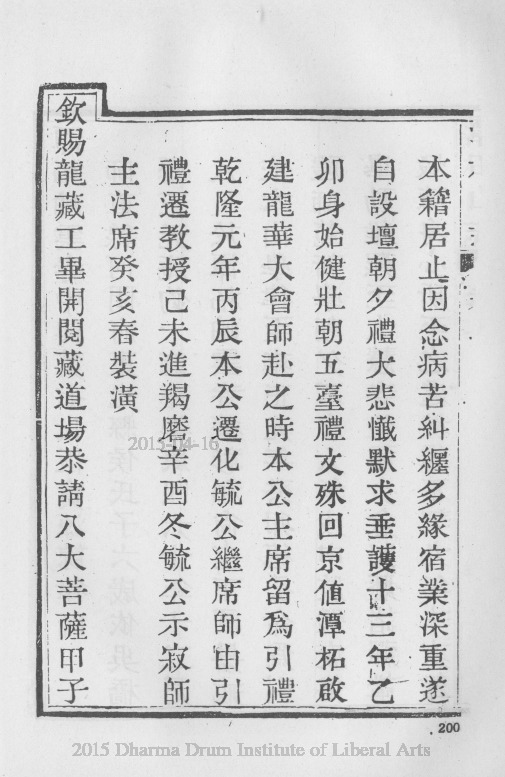 本籍居止因念病苦糾纏多緣宿業深重遂
自設壇朝夕禮大悲懺默求垂護十三年乙
卯身始健壯朝五臺禮文殊回京值潭柘啟
建龍華大會師赴之時本公主席留為引禮
乾隆元年丙辰本公遷化毓公繼席師由引
禮遷教授己未進羯磨辛酉冬毓公示寂師
主法席癸亥春裝潢
欽賜龍藏工畢開閱藏道場恭請八大菩薩甲子
200
2015-04-16
2015 Dharma Drum Institute of Liberal Arts